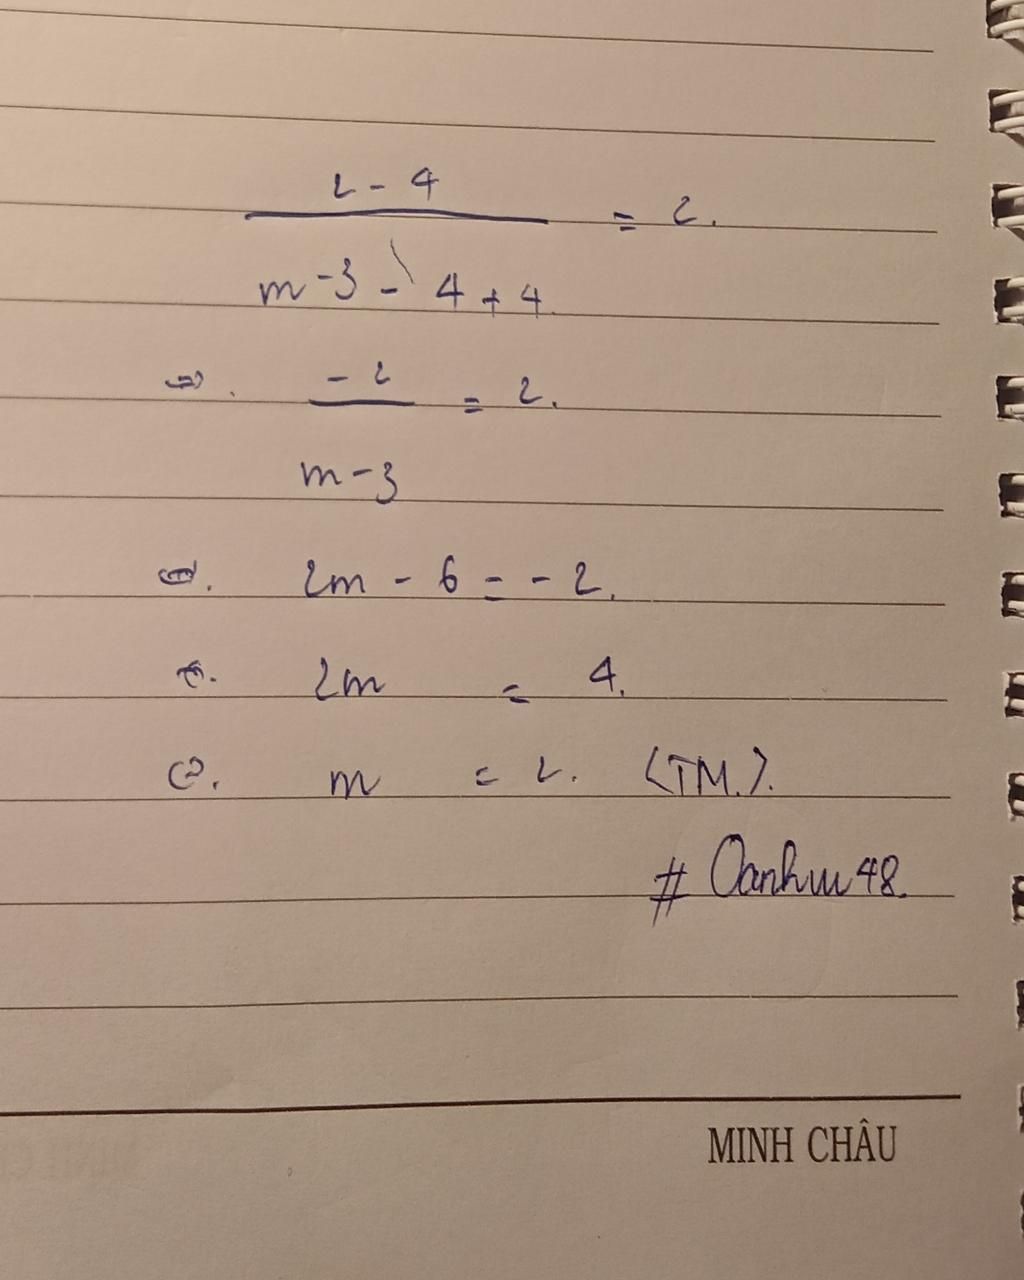 2 - 4
= 2.
m - 3 - 4 + 4.
⇔. - 2
= 2.
m - 3
⇔. 2m - 6 = - 2.
⇔. 2m = 4.
⇔. m = 2. (TM.).
# Oanhuu48.
MINH CHÂU